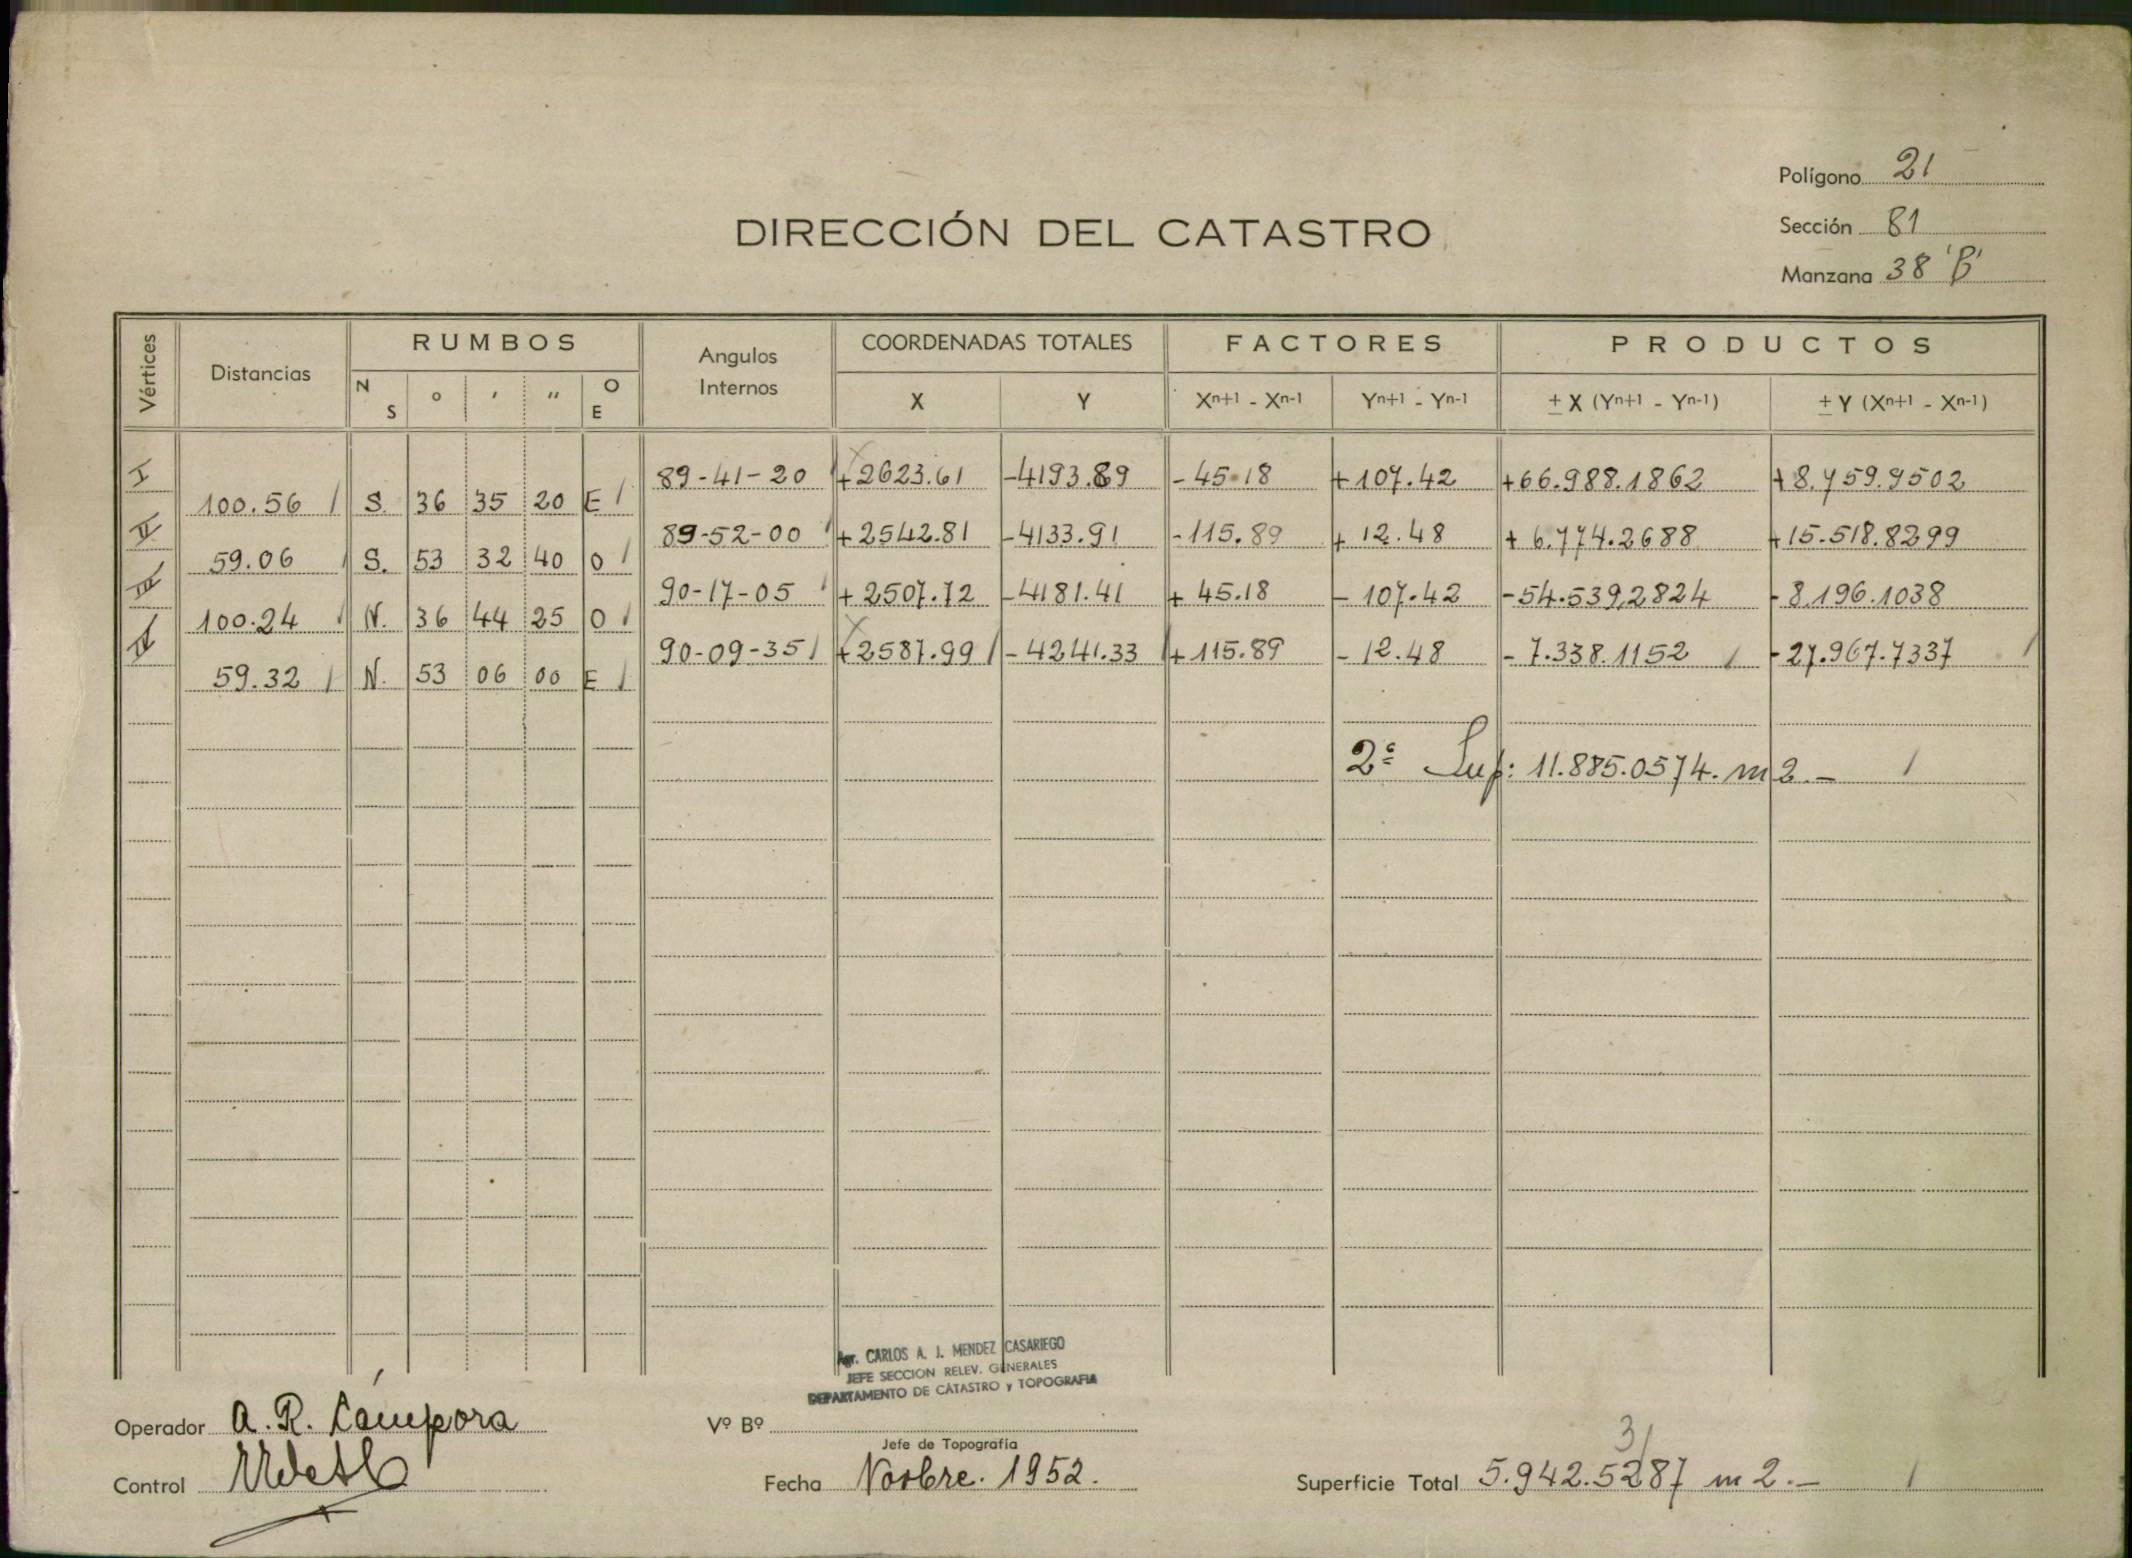 Polígono 21
DIRECCIÓN DEL CATASTRO
Sección 81
Manzana 38 'B'
Vértices Distancias RUMBOS Angulos Internos COORDENADAS TOTALES FACTORES PRODUCTOS
N S ° ' " O E X Y Xn+1 - Xn-1 Yn+1 - Yn-1 ± X (Yn+1 - Yn-1) ± Y (Xn+1 - Xn-1)
I 89-41-20 +2623.61 -4193.89 -45.18 +107.42 +66.988.1862 +8.759.9502
100.56 S. 36 35 20 E
II 89-52-00 +2542.81 -4133.91 -115.89 + 12.48 + 6.774.2688 +15.518.8299
59.06 S. 53 32 40 O
III 90-17-05 +2507.72 -4181.41 + 45.18 - 107.42 -54.539.2824 - 8.196.1038
100.24 N. 36 44 25 O
IV 90-09-35 +2587.99 -4241.33 +115.89 - 12.48 - 7.338.1152 -27.967.7337
59.32 N. 53 06 00 E
2= Sup: 11.885.0574. m2.-
Agr. CARLOS A. J. MENDEZ CASARIEGO
JEFE SECCION RELEV. GENERALES
DEPARTAMENTO DE CATASTRO y TOPOGRAFIA
Operador A. R. Cámpora Vº Bº
Jefe de Topografía
3
Control Fecha Novbre. 1952. Superficie Total 5.942.5287 m2.-